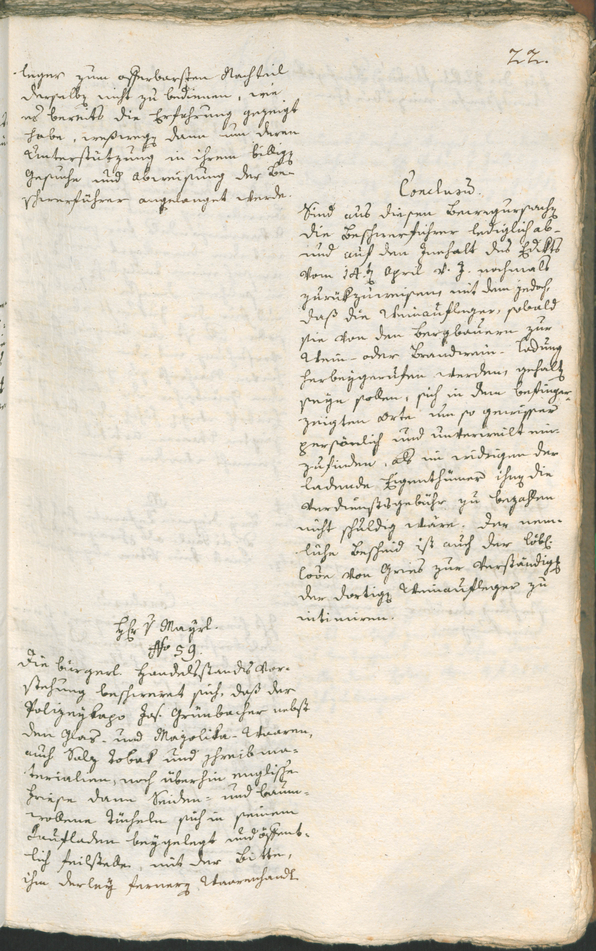 22.
leger zum offenbarsten Nachteil
derselben nicht zu bedienen, wie
es bereits die Erfahrung gezeigt
habe, weßwegen dann um deren
Unterstützung in ihrem billigen
Gesuche und Abweisung der Be-
schwerführer angelanget werde.
Conclusum.
Sind aus diesen Bewegursachen
die Beschwerführer lediglich ab-
und auf den Inhalt des Edikts
vom 14.ten April v. J. nochmals
zurückzuweisen, mit dem jedoch,
daß die Weinaufleger, sobald
sie von den Bergbauern zur
Wein- oder Brandwein-Ladung
herbeygerufen werden, gehalten
seyn sollen, sich in dem
zeigten Orte um so gewisser
persönlich und unverweilt ein-
zufinden, als im widrigen der
ladende Eigenthümer ihnen die
Verdienstsgebühr zu bezahlen
nicht schuldig wäre. Der nem-
liche Bescheid ist auch der löbl.
von Gries zur Verständigung
der dortigen Weinaufleger zu
intimiren.
Hr. v Mayrl.
No 59.
Die bürgerl. Handelsstands Vor-
stehung beschweret sich, daß der
Polizeykapo Jos. Grünbacher nebst
den Glas- und Majolika-Waaren,
auch Salz Tobak und Schreibma-
terialien, noch überhin englische
dann Seiden- und baum-
wollene Tücheln sich in seinem
Kaufladen beygelegt und öffent-
lich feilhabe, mit der Bitte,
ihm derley fernern Waarenhandl.